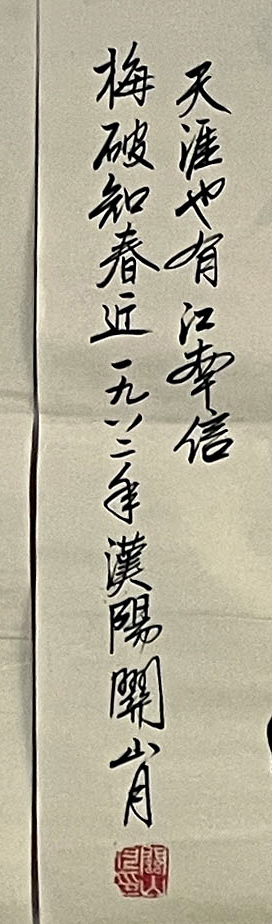 天涯也有江南信
梅破知春近一九八二年漢陽關山月